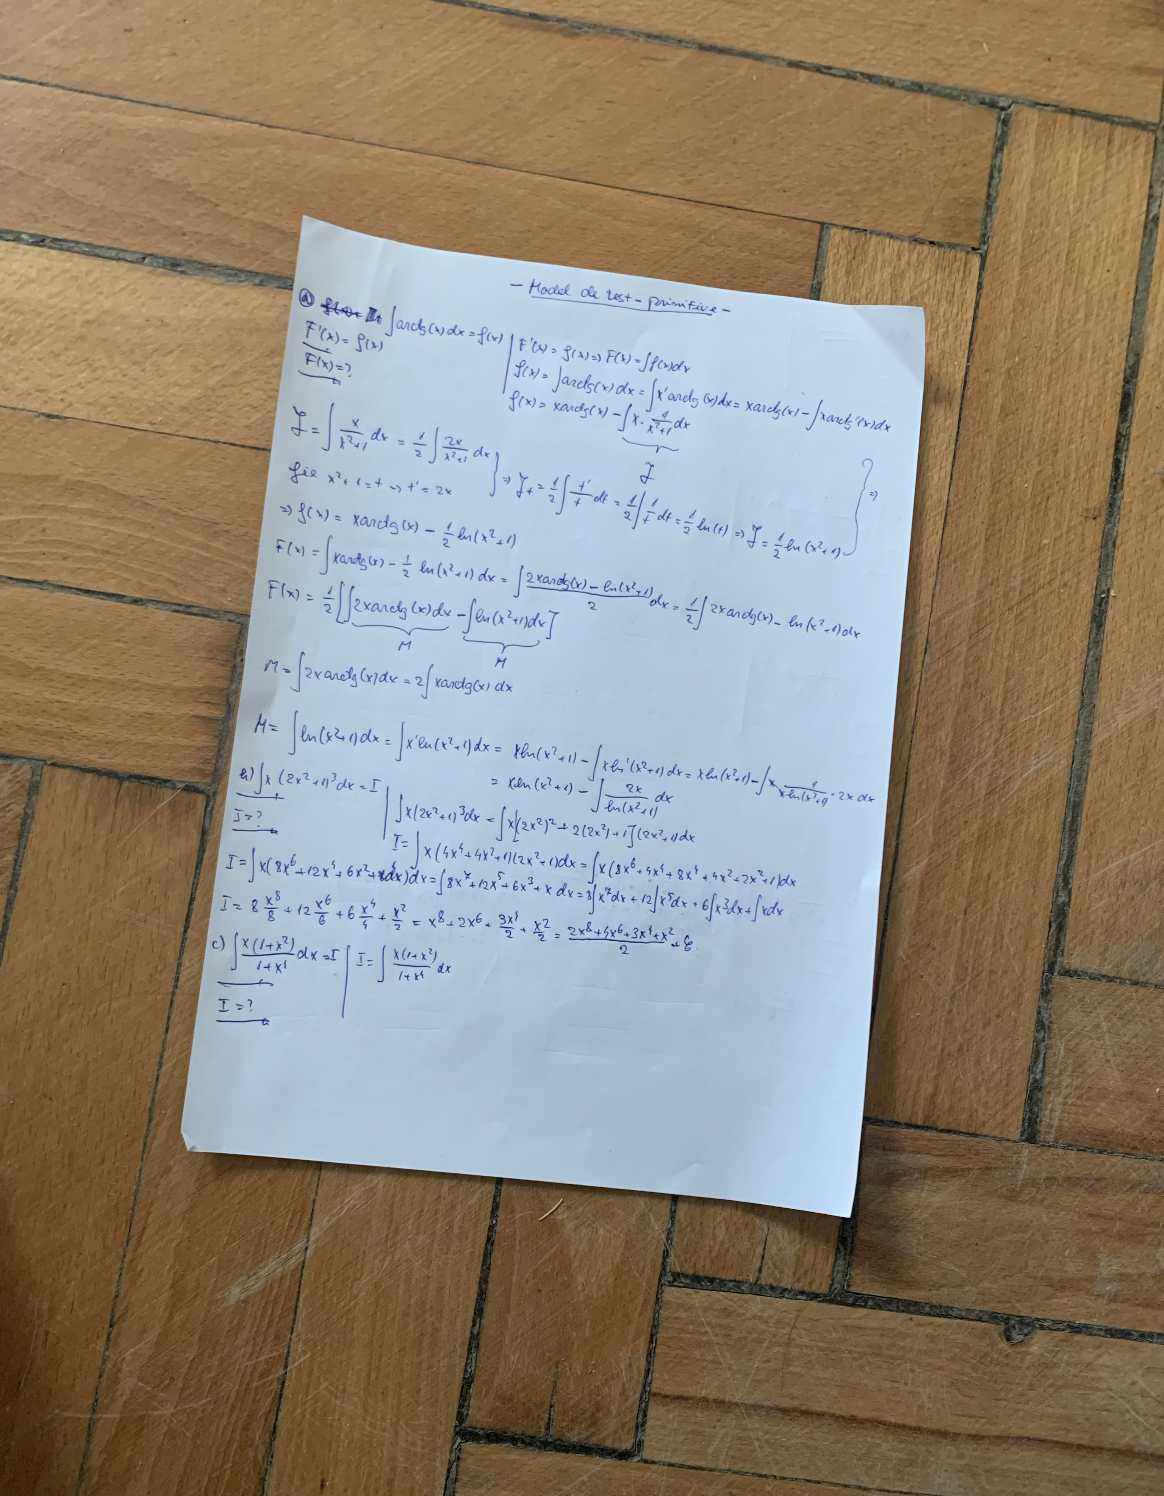 - Model de test - primitive -
a) ∫arctg(x)dx = f(x)
F'(x) = f(x)
F(x) = ?
F'(x) = f(x) => F(x) = ∫f(x)dx
f(x) = ∫arctg(x)dx = ∫x'arctg(x)dx = xarctg(x) - ∫xarctg'(x)dx
f(x) = xarctg(x) - ∫x · 1/(x²+1) dx
J
J = ∫ x/(x²+1) dx = 1/2 ∫ 2x/(x²+1) dx
fie x²+1 = t => t' = 2x
=> J_t = 1/2 ∫ t'/t dt = 1/2 ∫ 1/t dt = 1/2 ln(t) => J = 1/2 ln(x²+1) =>
=> f(x) = xarctg(x) - 1/2 ln(x²+1)
F(x) = ∫xarctg(x) - 1/2 ln(x²+1)dx = ∫ (2xarctg(x) - ln(x²+1))/2 dx = 1/2 ∫2xarctg(x) - ln(x²+1)dx
F(x) = 1/2 [∫2xarctg(x)dx - ∫ln(x²+1)dx]
M M
M = ∫2xarctg(x)dx = 2∫xarctg(x)dx
M = ∫ln(x²+1)dx = ∫x'ln(x²+1)dx = xln(x²+1) - ∫xln'(x²+1)dx = xln(x²+1) - ∫x · 2x dx
= xln(x²+1) - ∫ 2x/ln(x²+1) dx
b) ∫x(2x²+1)³dx = I
I = ?
∫x(2x²+1)³dx = ∫x[(2x²)² + 2(2x²) + 1](2x²+1)dx
I = ∫x(4x⁴+4x²+1)(2x²+1)dx = ∫x(8x⁶+4x⁴+8x⁴+4x²+2x²+1)dx
I = ∫x(8x⁶+12x⁴+6x²+1)dx = ∫8x⁷+12x⁵+6x³+x dx = 8∫x⁷dx + 12∫x⁵dx + 6∫x³dx + ∫xdx
I = 8 x⁸/8 + 12 x⁶/6 + 6 x⁴/4 + x²/2 = x⁸ + 2x⁶ + 3x⁴/2 + x²/2 = (2x⁸+4x⁶+3x⁴+x²)/2 + C
c) ∫ x(1+x²)/(1+x⁴) dx = I
I = ?
I = ∫ x(1+x²)/(1+x⁴) dx